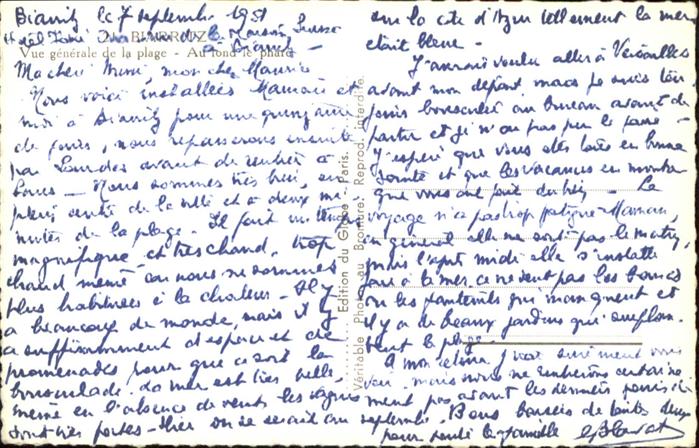 Biarritz le 7 septembre 1951
BIARRITZ
Vue générale de la plage - Au fond le phare
Ma chère Mimi, mon cher Maurice
Nous voici installées Maman et
moi à Biarritz pour une quinzaine
de jours, nous repasserons ensuite
par Lourdes avant de rentrer à
Nous sommes très bien, en
plein centre de la ville et à deux mi
nutes de la plage. Il fait un temps
magnifique et très chaud, trop
chaud même car nous ne sommes
plus habituées à la chaleur. Il y
a beaucoup de monde, mais il y
a suffisamment d'espaces et de
promenades pour que ce soit la
bousculade. La mer est très belle
même en l'absence de vent, les vagues
sont très fortes - hier on se serait cru
sur la côte d'Azur tellement la mer
était bleue.
J'aurais voulu aller à Versailles
avant mon départ mais je suis
bousculée au bureau avant de
partir et je n'ai pas pu le faire -
J'espère que vous êtes tous en bonne
santé et que les vacances en montagne
vous ont fait du bien - Le
voyage n'a pas trop fatigué Maman,
en général elle ne sort pas le matin,
mais l'après midi elle s'installe
face à la mer, ce ne sont pas les bancs
ou les fauteuils qui manquent et
il y a de beaux jardins qui surplom-
bent la plage.
A mon retour j'irai sûrement vous
voir, mais nous ne rentrerons certaine
ment pas avant les derniers jours de
septembre. Bons baisers de toutes deux
pour toute la famille
Edition du Globe - Paris.
Véritable Photo au Bromure. Reprod. interdite.